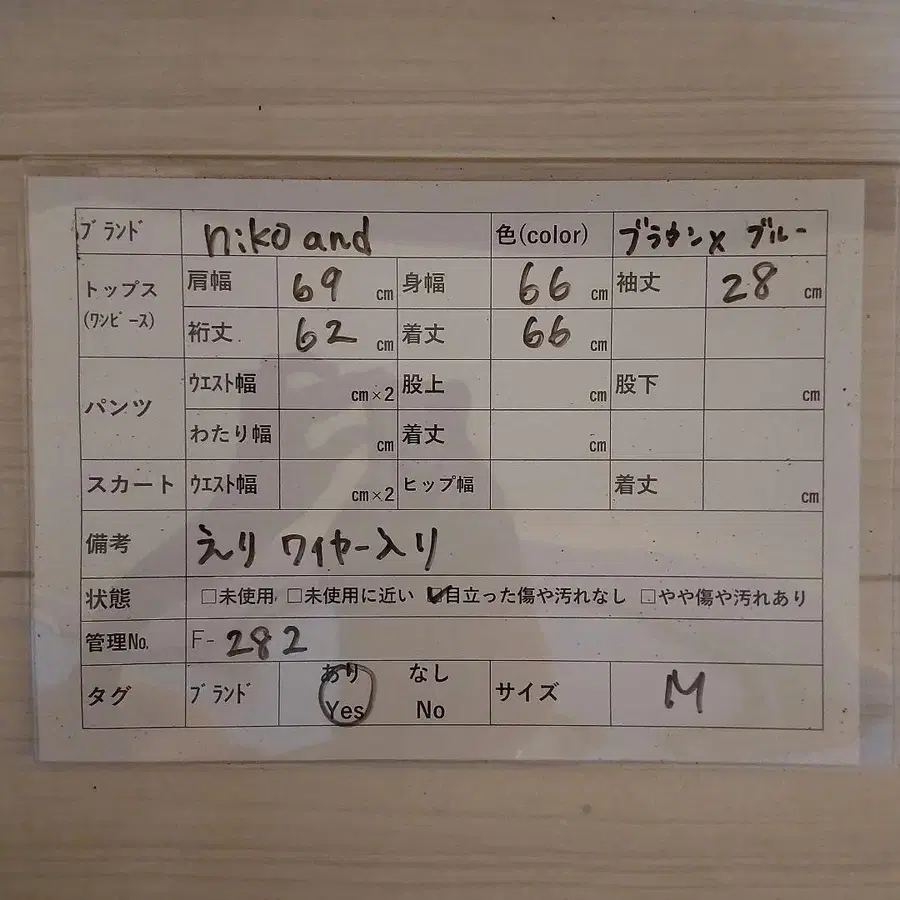 ブランド niko and 色(color) ブラウン×ブルー
トップス(ワンピース) 肩幅 69 cm 身幅 66 cm 袖丈 28 cm
裄丈. 62 cm 着丈 66 cm
パンツ ウエスト幅 cm×2 股上 cm 股下 cm
わたり幅 cm 着丈 cm
スカート ウエスト幅 cm×2 ヒップ幅 着丈 cm
備考 えり ワイヤー入り
状態 □未使用 □未使用に近い ☑目立った傷や汚れなし □やや傷や汚れあり
管理No. F-282
タグ ブランド あり Yes なし No サイズ M